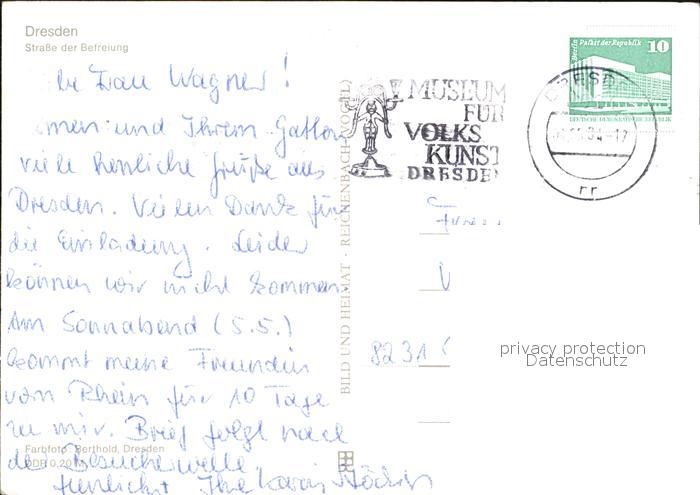 Dresden
Straße der Befreiung
Frau Wagner!
und Ihrem Gatten
viele herzliche Grüße aus
Dresden. Vielen Dank für
die Einladung. Leider
können wir nicht kommen.
Am Sonnabend (5.5.)
kommt meine Freundin
vom Rhein für 10 Tage
zu mir. Brief folgt nach
der Besucherwelle.
Herzlichst Ihre Karin
Farbfoto: Berthold, Dresden
DDR 0,20 M
BILD UND HEIMAT · REICHENBACH (VOGTL)
MUSEUM
FÜR
VOLKS
KUNST
DRESDEN
DRESD
84-17
rr
Berlin Palast der Republik 10
8231
privacy protection
Datenschutz